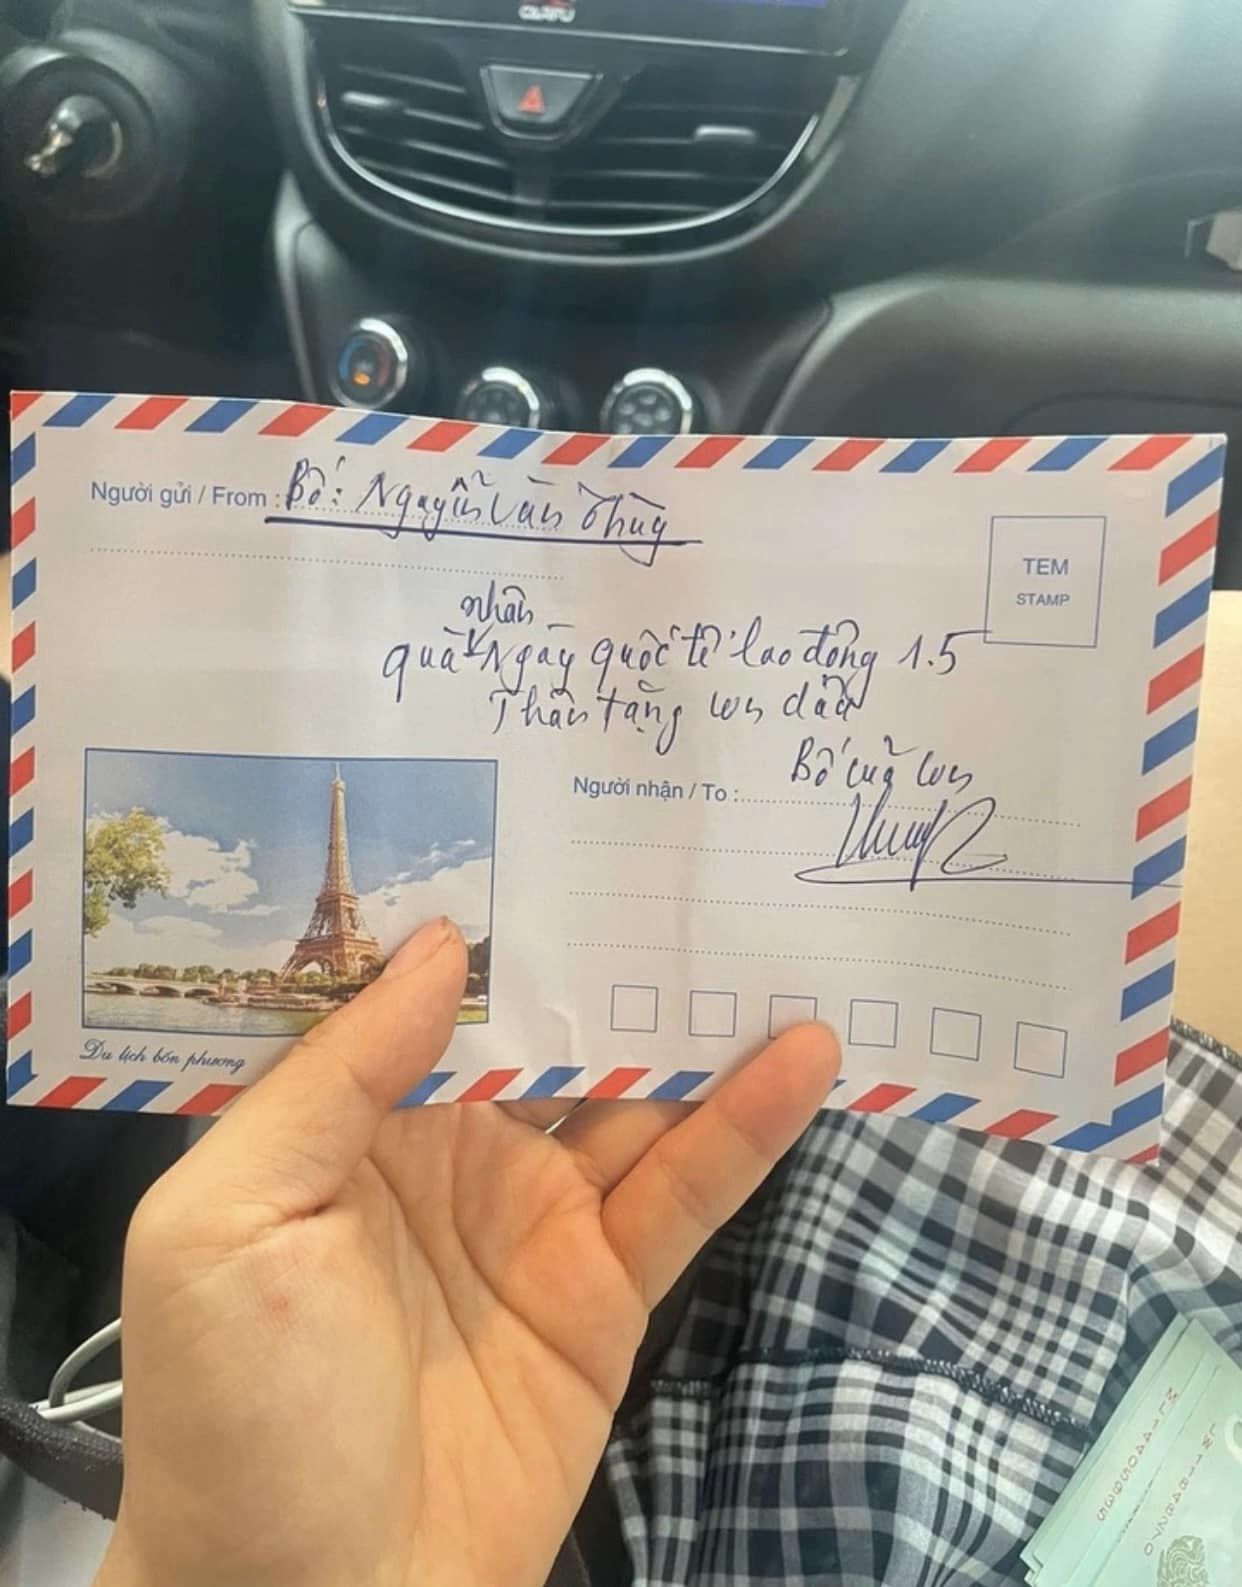 Người gửi / From : Bố: Nguyễn Văn Thùy
TEM
STAMP
nhân
quà Ngày quốc tế lao động 1.5
Thân tặng con dâu
Bố của con
Người nhận / To :
Du lịch bốn phương